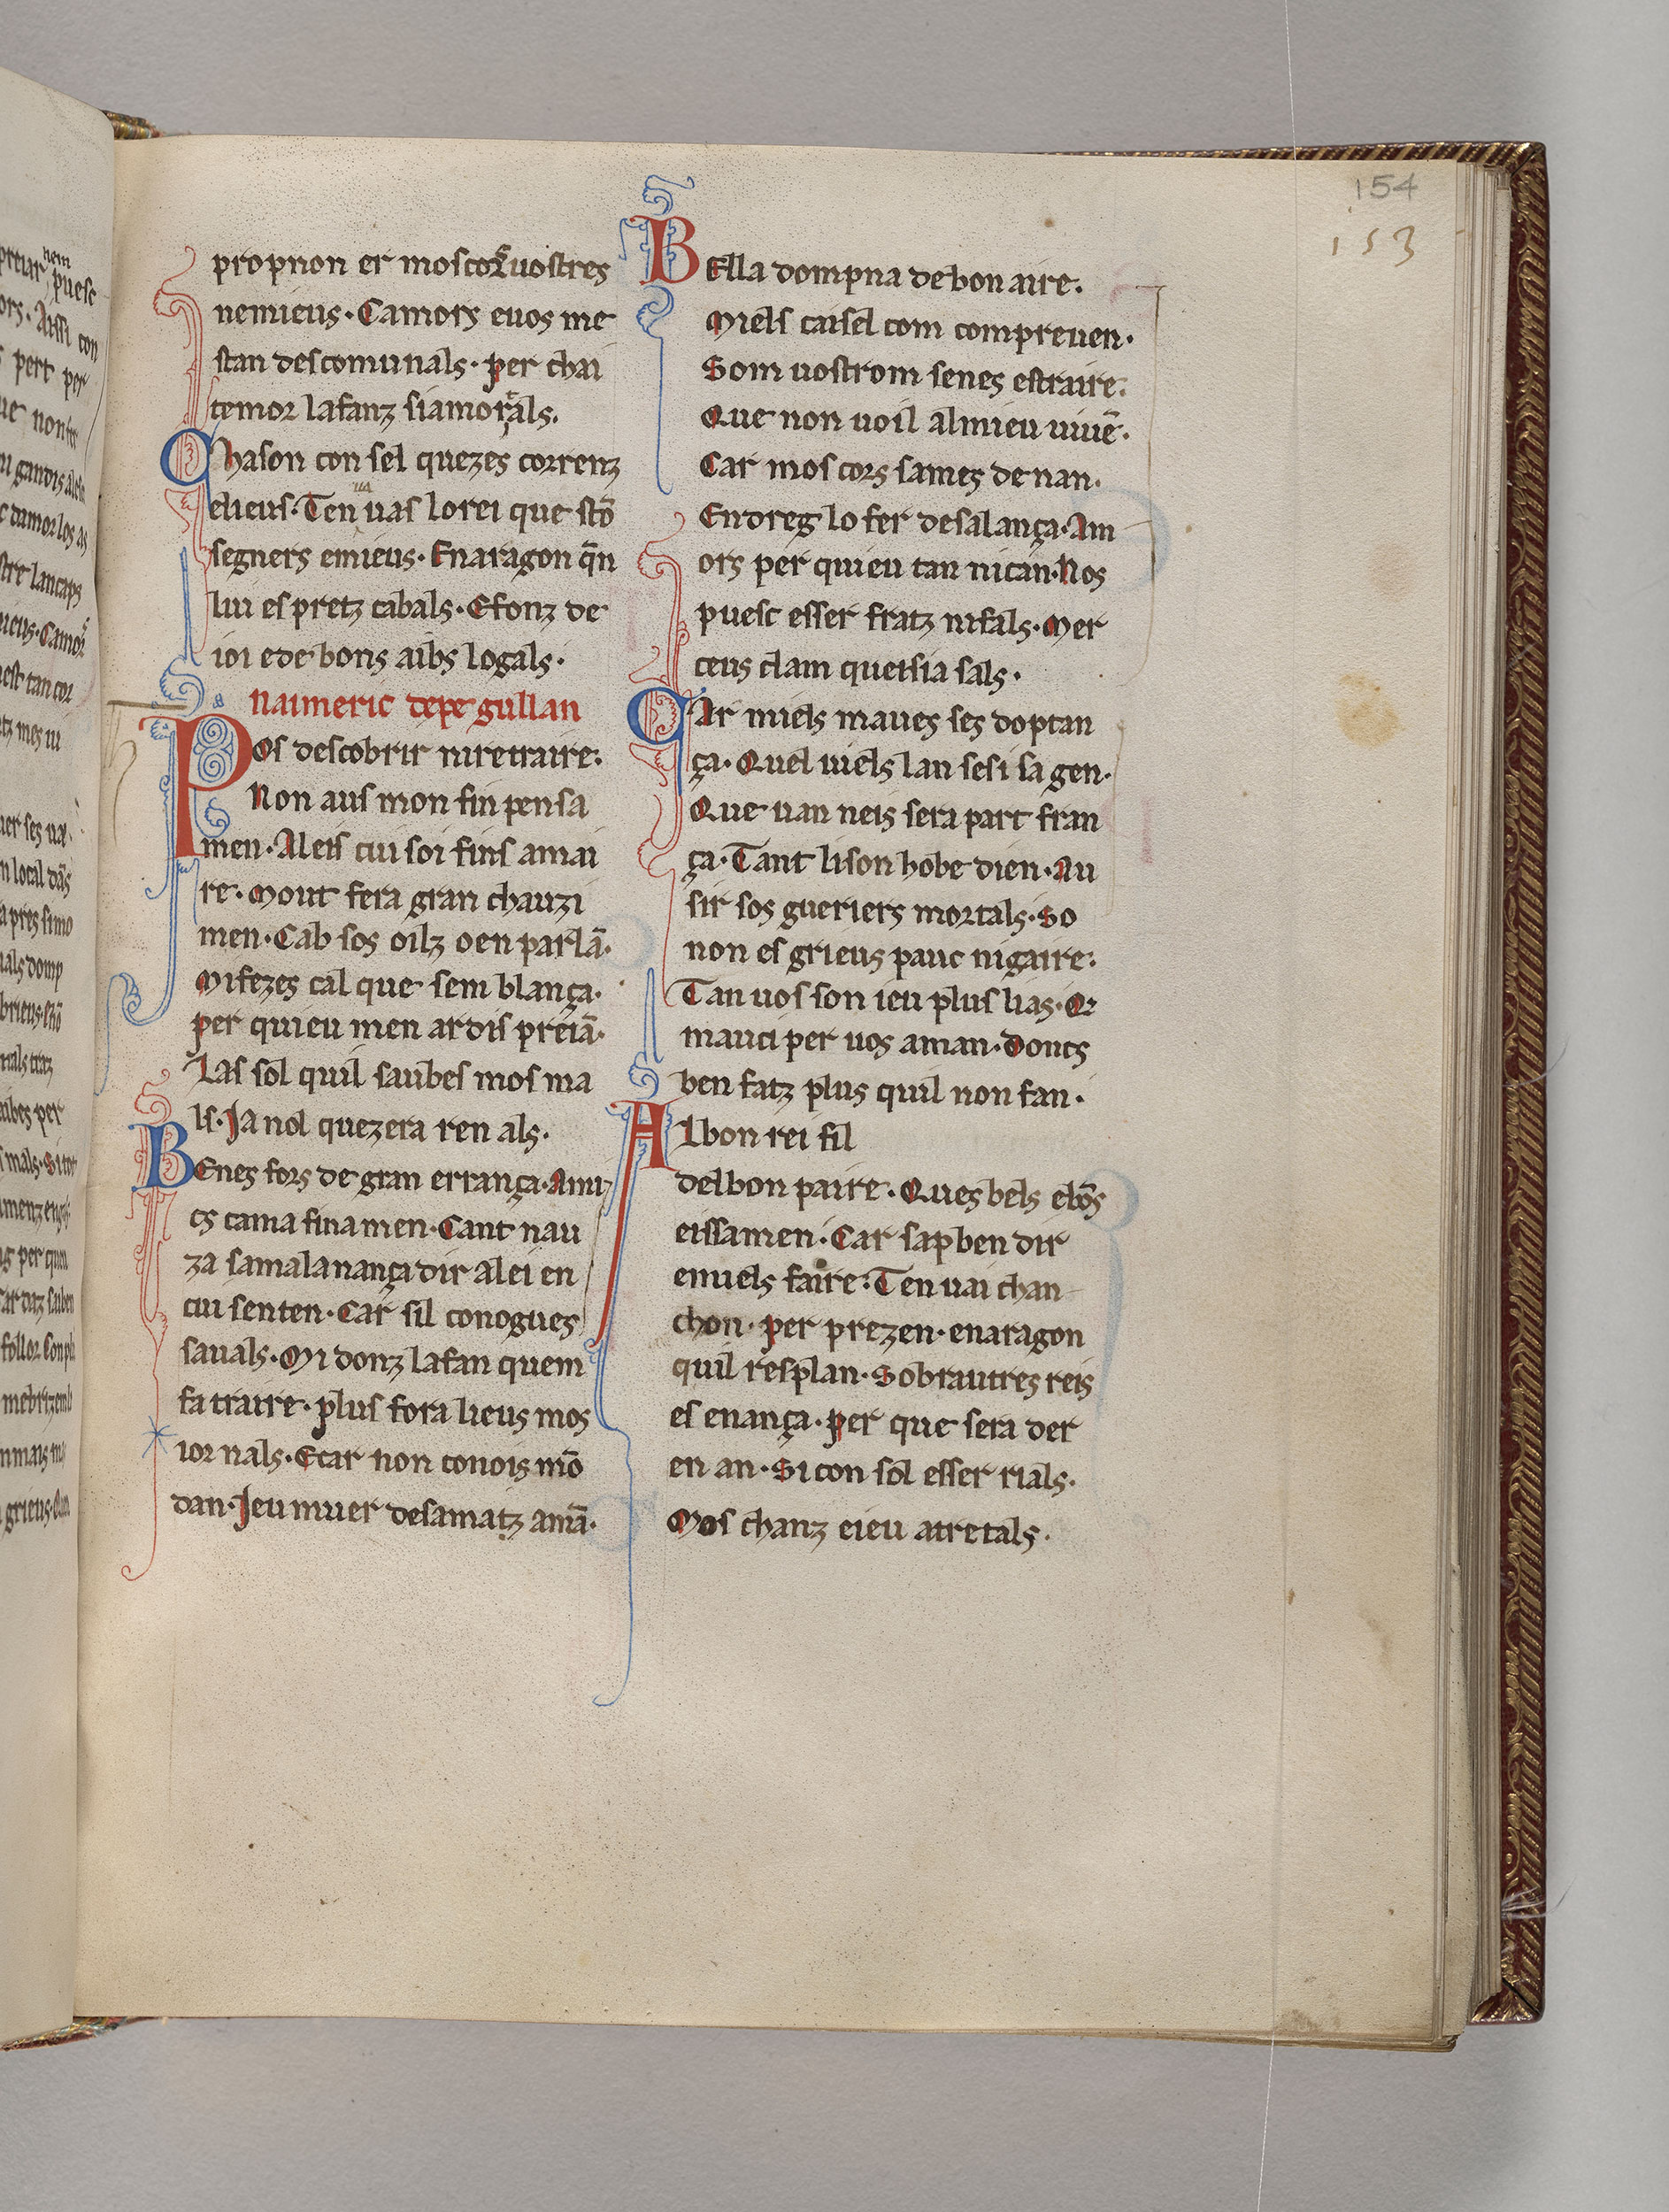 154
153
propnon er mos cors uostres
nemicus · Camors euos me
stan descomunals · per chai
temor lafanz siamorals.
Chason con sel quezes correnz
elieus · Ten uas lo rei que stō
segners emieus · Enaragon q̄n
lui es pretz cabals · E fonz de
ioi ede bons aibs logals ·
Naimeric de pe gullan
Pos descobrir niretraire:
Non aus mon fin pensa
men · A leis cui soi fins amai
re · Mout fera gran chauzi
men · Cab sos oilz o en parlā·
Mi fezes cal que sem blança·
per quieu men ardis preiā·
Las sol quil saubes mos ma
ls · Ja nol quezera ren als·
Benes fors de gran errança · Ami
cs cama fina men · Cant nau
za sa malanança dir a lei en
cui senten · Car sil conogues
sauals · Mi donz lafan quem
fa traire · plus fora lieus mos
iornals · E car non conois mō
dan · Ieu muer desamatz amā·
Bella dompna de bon aire.
Miels caisel com compreuen·
Som uostrom senes estraire:
Que non uoil al mieu uiuē·
Car mos cors sames denan·
Endreg lo fer desa lança · Am
ors per quieu tan nican · Nos
puesc esser fratz ni fals · Mer
ceus clam queisia sals·
Car miels maues ses doptan
ça · Quel uiels lan sesi sa gen·
Que uan neis sera part fran
ça · Tant li son hobe dien · Au
sir sos gueriers mortals · So
non es grieus pauc nigaire:
Tan uos son ieu plus lias · E
mauci per uos aman · Doncs
ben fatz plus quil non fan·
Al bon rei fil
del bon paire · Ques bels ebōs
eissamen · Car sap ben dir
emiels faire · Ten uai chan
chon · per prezen · enaragon
quil resplan · Sobrautres reis
es enança · per que sera der
en an · Si con sol esser rials·
Mos chanz eieu atretals·